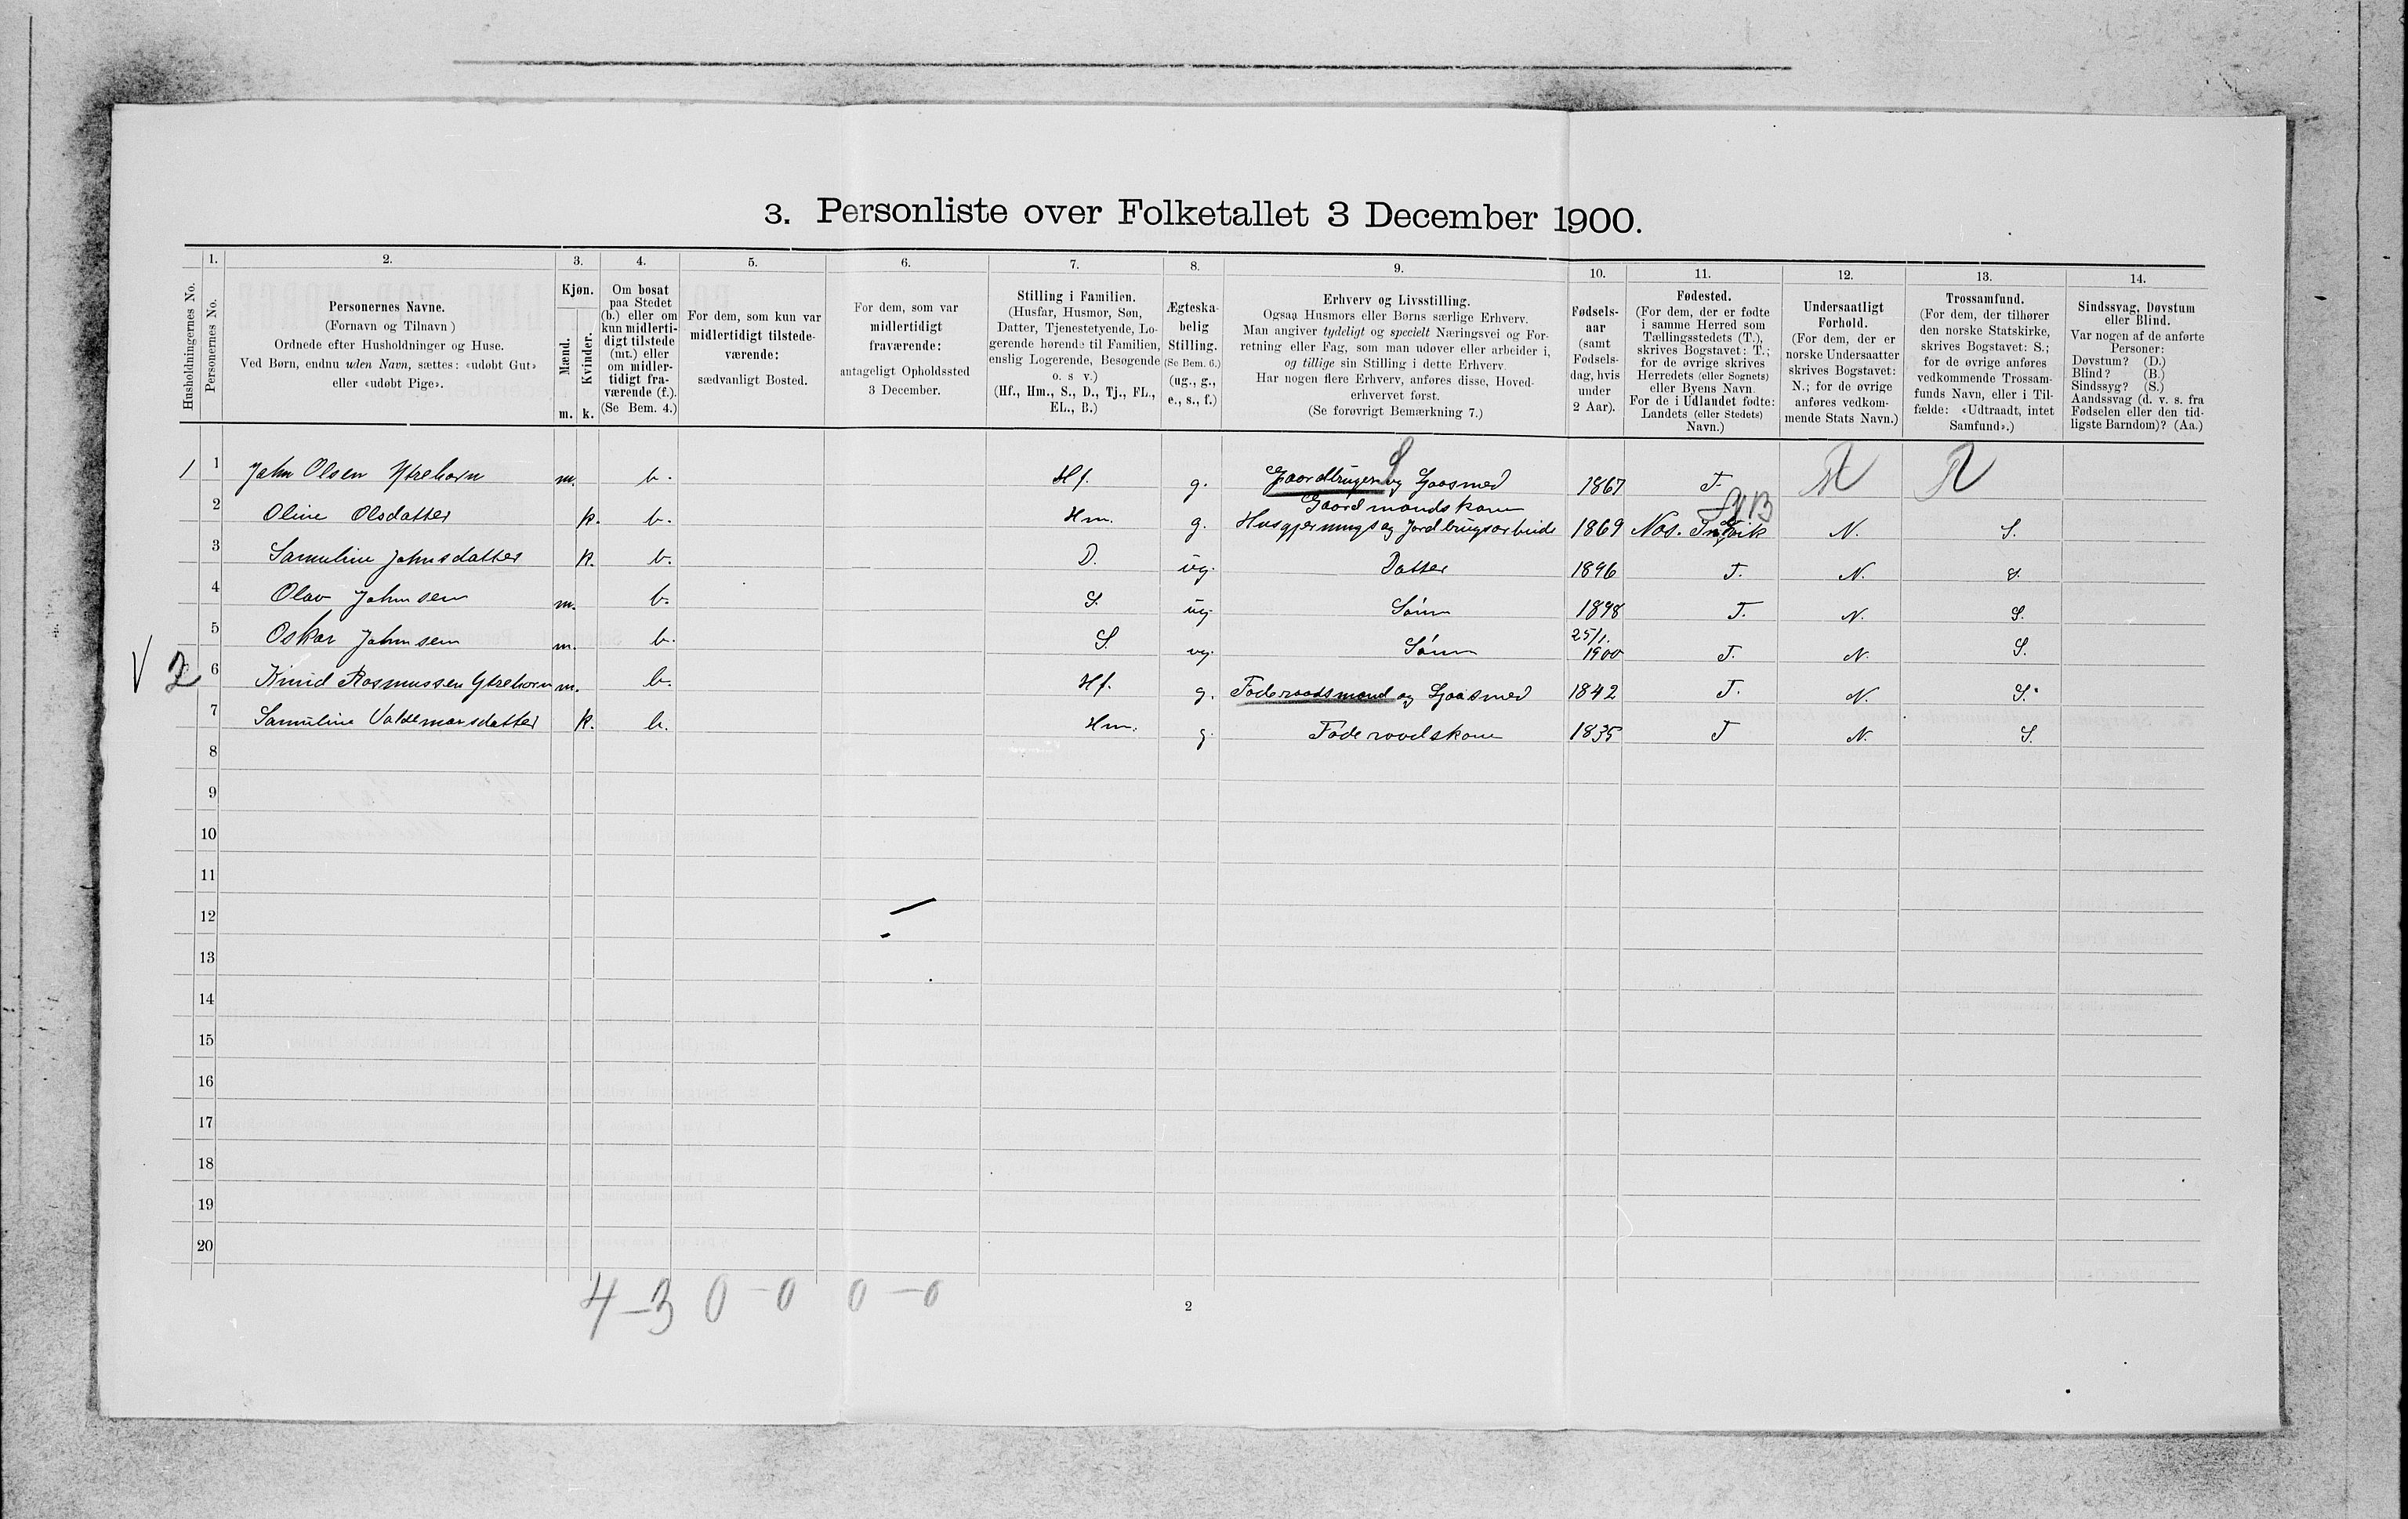 3. Personliste over Folketallet 3 December 1900.
Husholdningernes No.
1.
Personernes No.
2.
Personernes Navne.
(Fornavn og Tilnavn)
Ordnede efter Husholdninger og Huse.
Ved Børn, endnu uden Navn, sættes: «udøbt Gut»
eller «udøbt Pige».
3.
Kjøn.
Mænd.
Kvinder.
m. k.
4.
Om bosat
paa Stedet
(b.) eller om
kun midlerti-
digt tilstede
(mt.) eller
om midler-
tidigt fra-
værende (f.).
(Se Bem. 4.)
5.
For dem, som kun var
midlertidigt tilstede-
værende:
sædvanligt Bosted.
6.
For dem, som var
midlertidigt
fraværende:
antageligt Opholdssted
3 December.
7.
Stilling i Familien.
(Husfar, Husmor, Søn,
Datter, Tjenestetyende, Lo-
gerende hørende til Familien,
enslig Logerende, Besøgende
o. s v.)
(Hf., Hm., S., D., Tj., FL.,
EL., B.)
8.
Ægteska-
belig
Stilling.
(Se Bem. 6.)
(ug., g.,
e., s., f.)
9.
Erhverv og Livsstilling.
Ogsaa Husmors eller Børns særlige Erhverv.
Man angiver tydeligt og specielt Næringsvei og For-
retning eller Fag, som man udøver eller arbeider i,
og tillige sin Stilling i dette Erhverv.
Har nogen flere Erhverv, anføres disse, Hoved-
erhvervet først.
(Se forøvrigt Bemærkning 7.)
10.
Fødsels-
aar
(samt
Fødsels-
dag, hvis
under
2 Aar).
11.
Fødested.
(For dem, der er fødte
i samme Herred som
Tællingsstedets (T.),
skrives Bogstavet: T.;
for de øvrige skrives
Herredets (eller Sognets)
eller Byens Navn.
For de i Udlandet fødte:
Landets (eller Stedets)
Navn.)
12.
Undersaatligt
Forhold.
(For dem, der er
norske Undersaatter
skrives Bogstavet:
N.; for de øvrige
anføres vedkom-
mende Stats Navn.)
13.
Trossamfund.
(For dem, der tilhører
den norske Statskirke,
skrives Bogstavet: S.;
for de øvrige anføres
vedkommende Trossam-
funds Navn, eller i Til-
fælde: «Udtraadt, intet
Samfund».)
14.
Sindssvag, Døvstum
eller Blind.
Var nogen af de anførte
Personer:
Døvstum? (D.)
Blind? (B.)
Sindssyg? (S.)
Aandssvag (d. v. s. fra
Fødselen eller den tid-
ligste Barndom)? (Aa.)
1 1 John Olsen Ytrehorn m. b. Hf. g. Gaardbruger og Gaasmed 1867 T.
Gaardmandskone
2 Oline Olsdatter k. b. Hm. g. Husgjernings og Jordbrugsarbeide 1869 N. S.
3 Samuline Johnsdatter k. b. D. ug. Datter 1896 T. N. S.
4 Olav Johnsen m. b. S. ug. Sønn 1898 T. N. S.
5 Oskar Johnsen m. b. S. ug. Sønn 25/1. 1900 T. N. S.
V 2 6 Knud Rasmussen Ytrehorn m. b. Hf. g. Føderaadsmand og Gaasmed 1842 T. N. S.
7 Samuline Valdemarsdatter k. b. Hm. g. Føderaadskone 1835 T N. S.
8
9
10
11
12
13
14
15
16
17
18
19
20
4-3 0-0 0-0
2